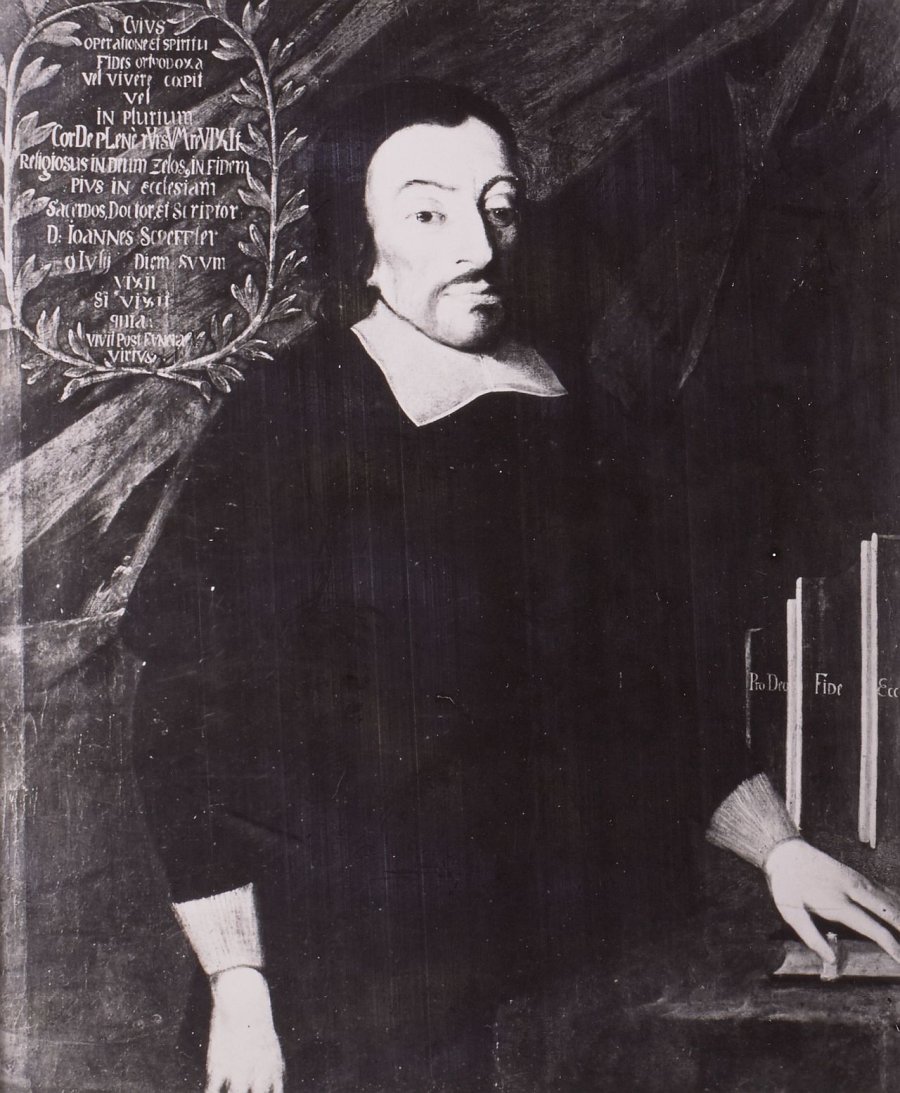 CVIVS
operatione et spiritu
FIDES orthodoxa
vel vivere cœpit
vel
in plurium
CorDe pLenè
Religiosus in DEUM Zelos, in FIDEM
PIVS in ecclesiam
Sacerdos, Doctor, et Scriptor
D. Ioannes Scheffler
9 Iulij Diem SVVM
vixit
Si vixit
quia
vivit Post Funera
virtvs
Pro Deo
FIDE
Ecc